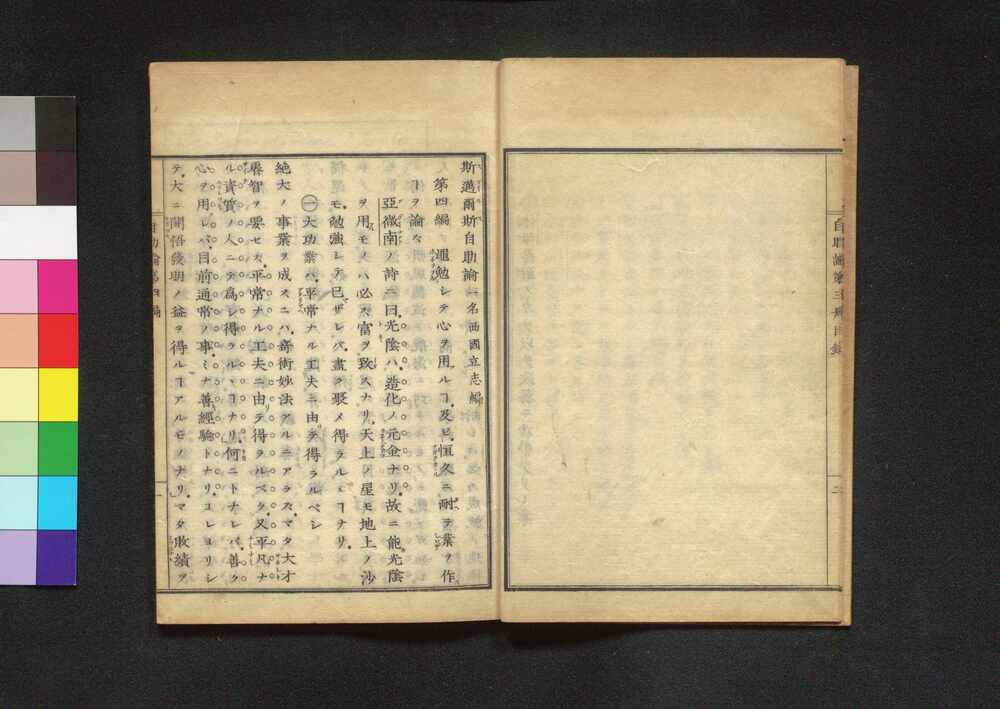 自助論第三編目録
二
斯邁爾斯自助論 一名西國立志編
第四編 黽勉シテ心ヲ用ルヿ及ビ恒久ニ耐テ業ヲ作
ヿヲ論ズ
亞微南ノ詩ニ曰光陰ハ造化ノ元金ナリ故ニ能光陰
ヲ用モノハ必ズ富ヲ致スナリ天上ノ星モ地上ノ沙
モ勉強シテ已ザレバ盡ク聚メ得ラルヽヿナリ
㊀大功業ハ平常ナル工夫ニ由テ得ラルベシ
絶大ノ事業ヲ成スニハ奇術妙法アルニアラズマタ大才
叡智ヲ要セズ平常ナル工夫ニ由リテ得ラルベク又平凡ナ
ル資質ノ人ニテ爲シ得ラルヽヿナリ何ニトナレバ善ク
心ヲ用レバ目前通常ノ事ミナ善經驗トナリコレヨリシ
テ大ニ開悟發明ノ益ヲ得ルヿアルモノナリマタ敗績ヲ
自助論第四編
一